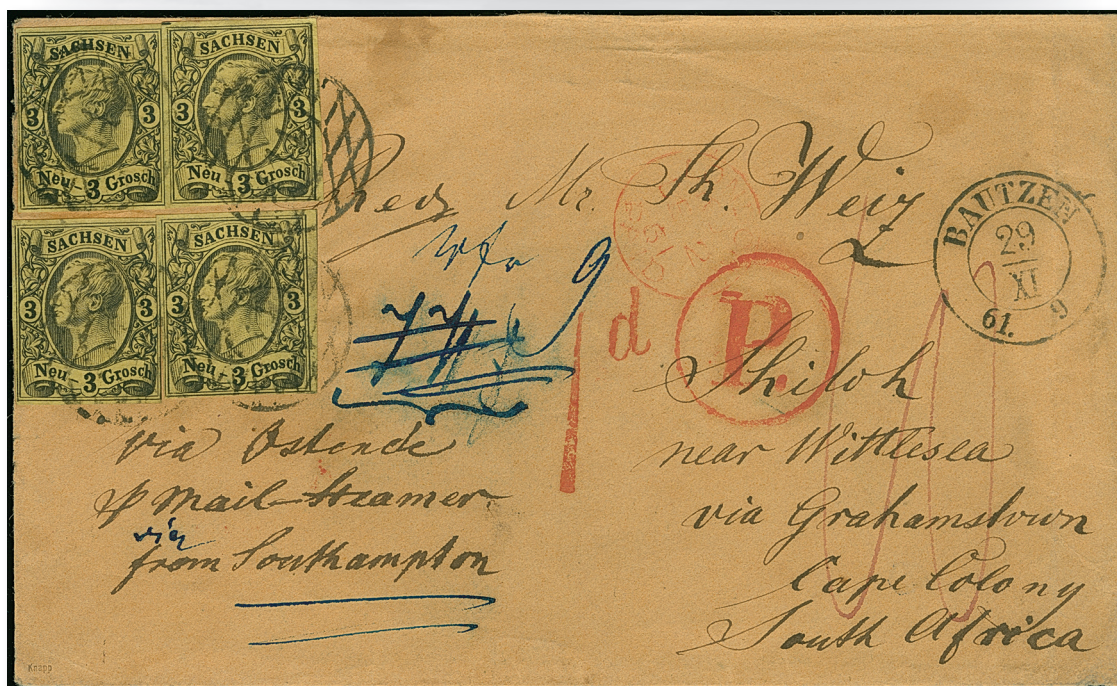 SACHSEN
3 3
Neu - 3 Grosch
SACHSEN
3 3
Neu - 3 Grosch
SACHSEN
3 3
Neu - 3 Grosch
SACHSEN
3 3
Neu - 3 Grosch
Mr. Th. Weiz
BAUTZEN
29
XI
61. 9
wfr 9
77
1 d
P.
Shiloh
near Wittlesea
via Grahamstown
Cape Colony
South Africa
via Ostende
p Mail-Steamer
via
from Southampton
Knapp